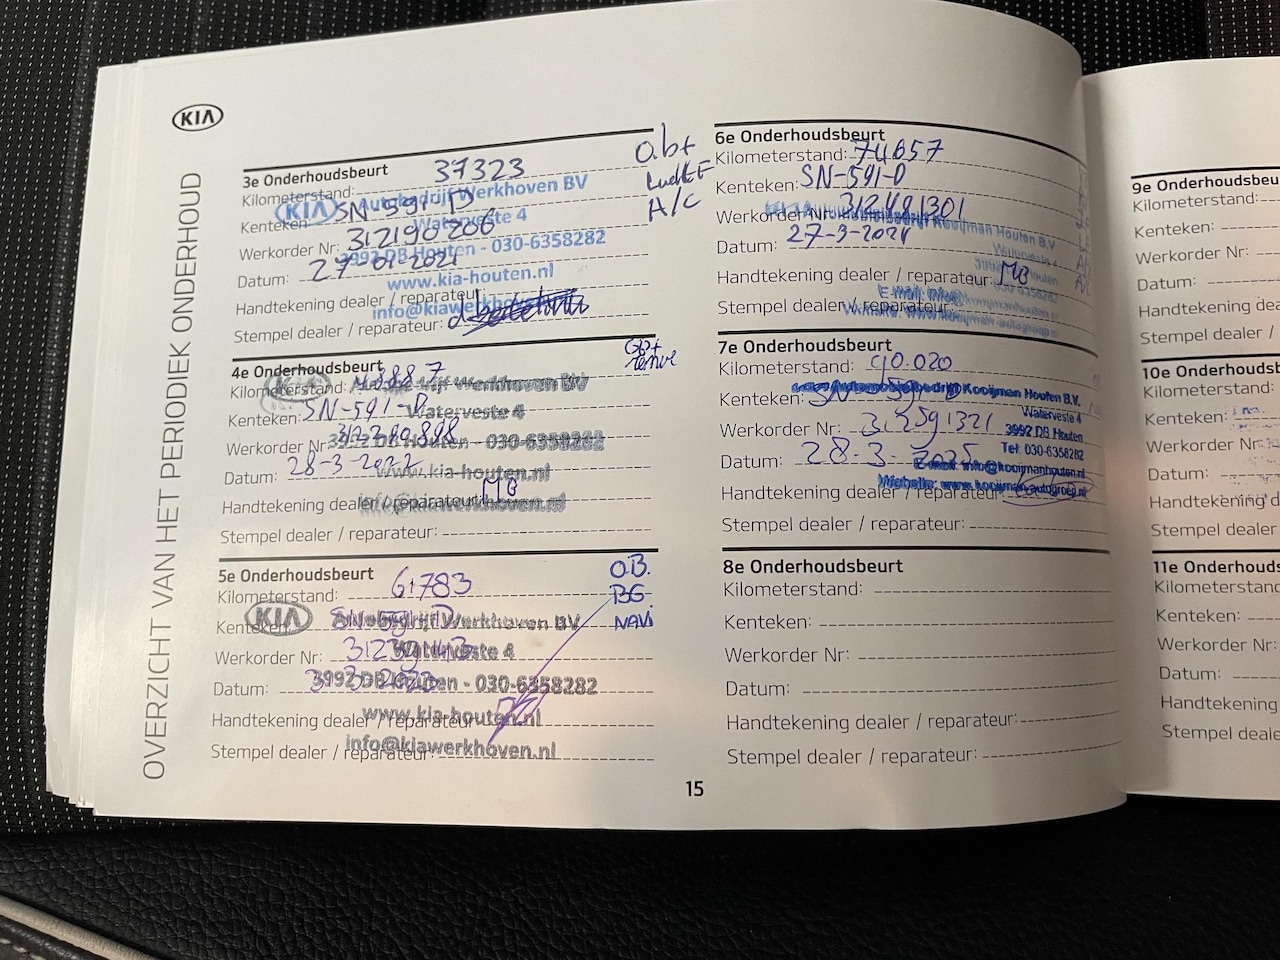 KIA
OVERZICHT VAN HET PERIODIEK ONDERHOUD
3e Onderhoudsbeurt
Kilometerstand: 37323
Kenteken: SN-591-D
Werkorder Nr: 312190206
Datum: 27-01-2021
Handtekening dealer / reparateur:
Stempel dealer / reparateur:
KIA Autobedrijf Werkhoven BV
Waterveste 4
3992 DB Houten - 030-6358282
www.kia-houten.nl
info@kiawerkhoven.nl
A/C
4e Onderhoudsbeurt
Kilometerstand:
Kenteken: SN-591-D
Werkorder Nr:
Datum: 28-3-2022
Handtekening dealer / reparateur: MB
Stempel dealer / reparateur:
KIA Autobedrijf Werkhoven BV
Waterveste 4
3992 DB Houten - 030-6358282
www.kia-houten.nl
info@kiawerkhoven.nl
5e Onderhoudsbeurt
Kilometerstand: 61783
Kenteken: SN-591-D
Werkorder Nr:
Datum:
Handtekening dealer / reparateur:
Stempel dealer / reparateur:
KIA Autobedrijf Werkhoven BV
Waterveste 4
3992 DB Houten - 030-6358282
www.kia-houten.nl
info@kiawerkhoven.nl
O.B.
BG
NAVi
6e Onderhoudsbeurt
Kilometerstand: 74657
Kenteken: SN-591-D
Werkorder Nr: 312491301
Datum: 27-3-2024
Handtekening dealer / reparateur: MB
Stempel dealer / reparateur:
Kooijman Houten B.V.
Waterveste 4
7e Onderhoudsbeurt
Kilometerstand: 90.020
Kenteken: SN-591-D
Werkorder Nr: 312591321
Datum: 28-3-2025
Handtekening dealer / reparateur:
Stempel dealer / reparateur:
Automobielbedrijf Kooijman Houten B.V.
Waterveste 4
3992 DB Houten
Tel: 030-6358282
E-mail: info@kooijmanhouten.nl
Website: www.kooijman-autogroep.nl
8e Onderhoudsbeurt
Kilometerstand:
Kenteken:
Werkorder Nr:
Datum:
Handtekening dealer / reparateur:
Stempel dealer / reparateur:
15
9e Onderhoudsbeu
Kilometerstand:
Kenteken:
Werkorder Nr:
Datum:
Handtekening dea
Stempel dealer /
10e Onderhoudsb
Kilometerstand:
Kenteken:
Werkorder Nr:
Datum:
Handtekening d
Stempel dealer
11e Onderhouds
Kilometerstand
Kenteken:
Werkorder Nr:
Datum:
Handtekening
Stempel dealer